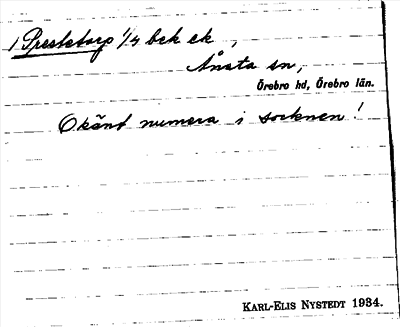 1 Prestetorp 1/4 bek ek,
Ånsta sn,
Örebro hd, Örebro län.
Okänt numera i socknen!
KARL-ELIS NYSTEDT 1934.